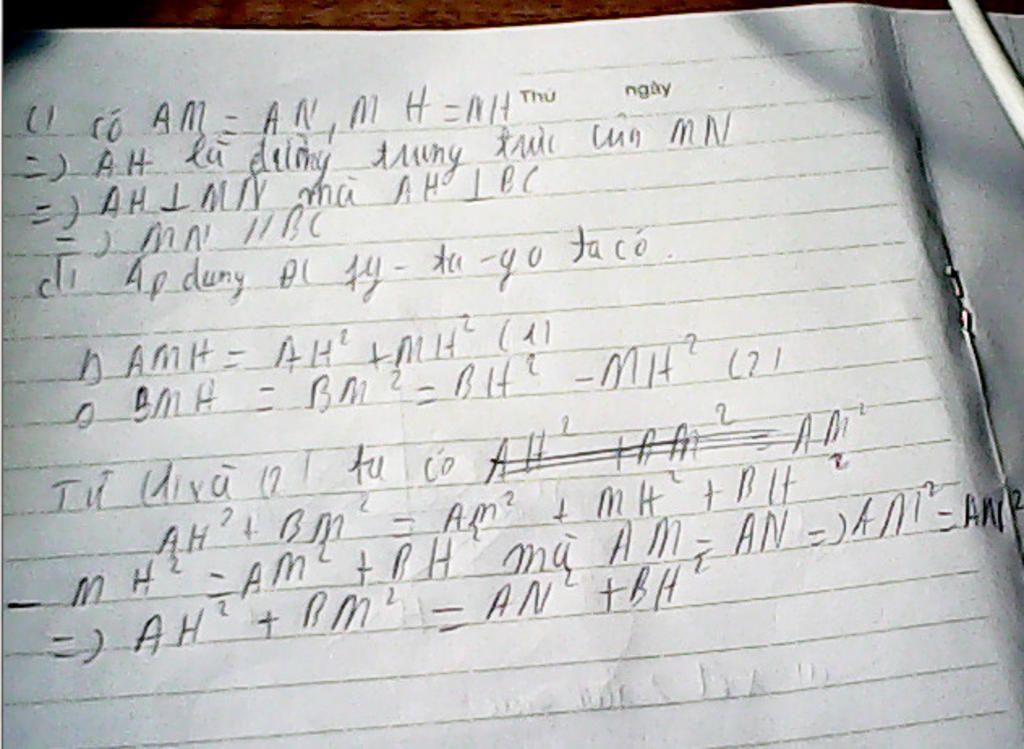 Thứ ngày
c) có AM = AN, MH = NH
=) AH là đường trung trực của MN
=) AH ⊥ MN mà AH ⊥ BC
=) MN // BC
d) Áp dụng ĐL Py-ta-go ta có.
Δ AMH = AH² + MH² (1)
Δ BMH = BM² = BH² - MH² (2)
Từ (1) và (2) ta có AH² + BM² = AM²
AH² + BM² = AM² + MH² + BH²
- MH² = AM² + BH² mà AM = AN =) AM² = AN²
=) AH² + BM² = AN² + BH²